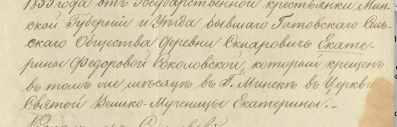 года отъ Государственной крестьянки Мин-
ской Губерніи и Уѣзда бывшаго Гатовскаго Сель-
скаго Общества деревни Скиаровичъ Екате-
рины Федоровой Соколовской, который крещенъ
въ томъ же мѣсяцѣ въ Г. Минскѣ въ Церкви
Святой Велико-Мученицы Екатерины.-